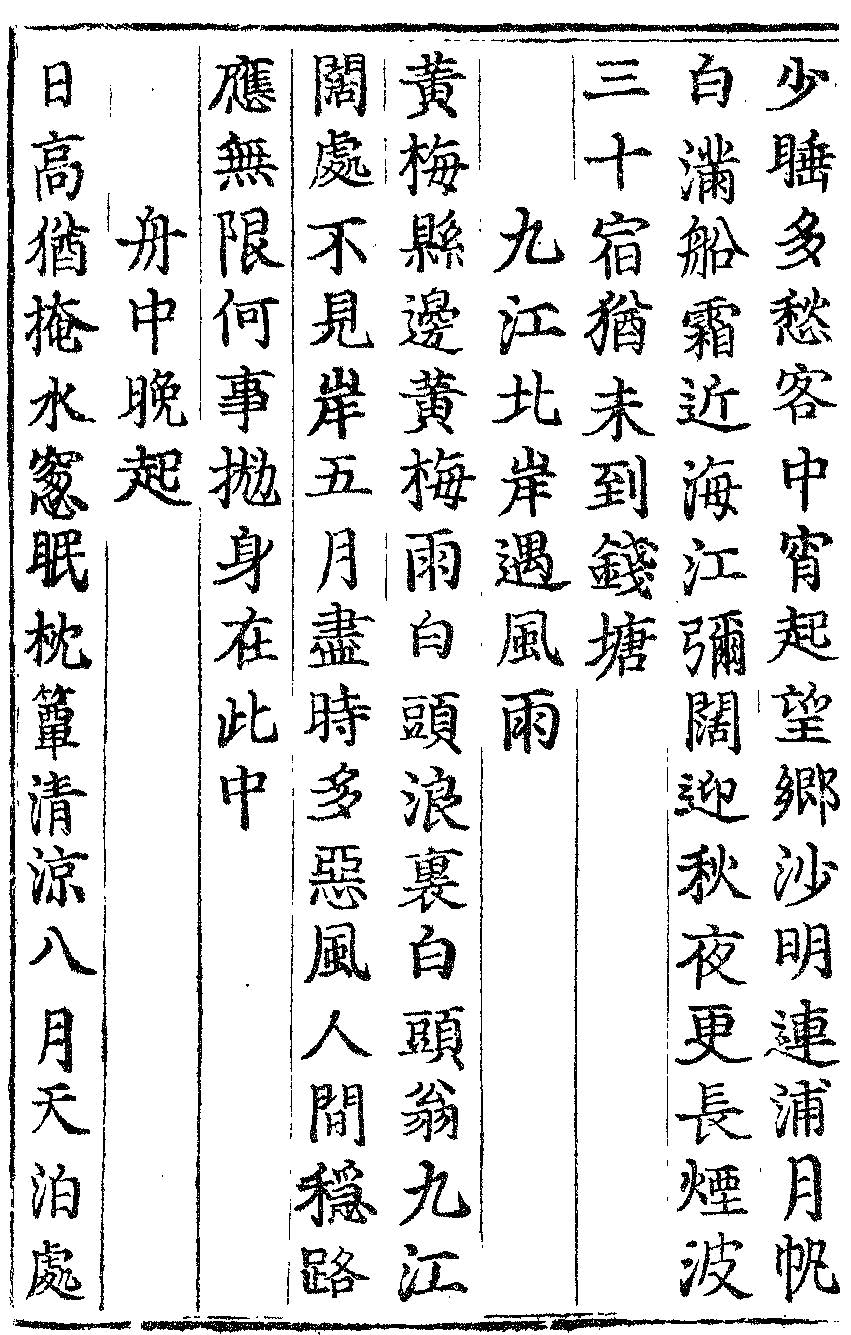 少睡多愁客中宵起望鄉沙明連浦月帆
白滿船霜近海江彌闊迎秋夜更長煙波
三十宿猶未到錢塘
九江北岸遇風雨
黃梅縣邊黃梅雨白頭浪裏白頭翁九江
闊處不見岸五月盡時多惡風人間穩路
應無限何事拋身在此中
舟中晚起
日高猶掩水窓眠枕簟清涼八月天泊處